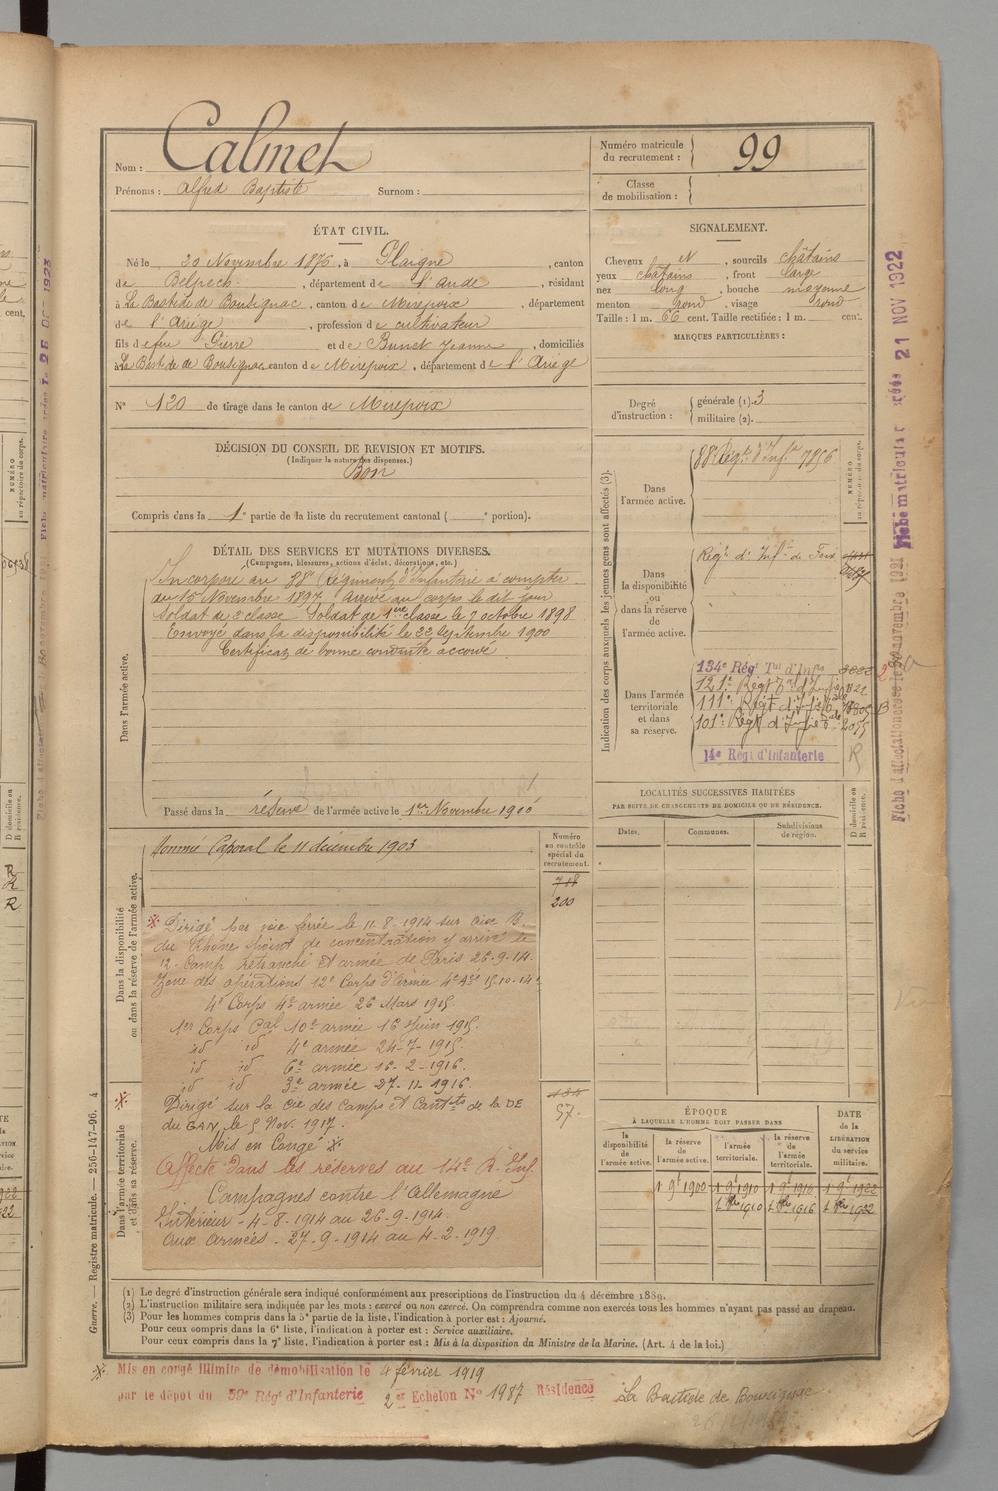 Nom : Calmet
Prénoms : Alfred Baptiste Surnom :
Numéro matricule du recrutement : 99
Classe de mobilisation :
ÉTAT CIVIL.
Né le 20 Novembre 1876, à Plaigne, canton
de Belpech, département de l'Aude, résidant
à La Bastide de Bousignac, canton de Mirepoix, département
de l'Ariège, profession de cultivateur
fils de feu Pierre et de Bunet Jeanne, domiciliés
à La Bastide de Bousignac canton de Mirepoix, département de l'Ariège
N° 120 de tirage dans le canton de Mirepoix
SIGNALEMENT.
Cheveux N, sourcils châtains
yeux châtains, front large
nez long, bouche moyenne
menton rond, visage rond
Taille : 1 m. 66 cent. Taille rectifiée : 1 m. cent.
MARQUES PARTICULIÈRES :
Degré d'instruction : générale (1). 3
militaire (2).
DÉCISION DU CONSEIL DE REVISION ET MOTIFS.
(Indiquer la nature des dispenses.)
Bon
Compris dans la 1e partie de la liste du recrutement cantonal ( e portion).
DÉTAIL DES SERVICES ET MUTATIONS DIVERSES.
(Campagnes, blessures, actions d'éclat, décorations, etc.)
Dans l'armée active.
Incorporé au 88e Régiment d'Infanterie à compter
du 15 Novembre 1897. Arrivé au corps le dit jour
Soldat de 2e classe Soldat de 1ère classe le 7 octobre 1898
Envoyé dans la disponibilité le 22 Septembre 1900
Certificat de bonne conduite accordé
Passé dans la réserve de l'armée active le 1er Novembre 1900
Indication des corps auxquels les jeunes gens sont affectés (3).
Dans l'armée active.
88e Régt d'Infie 7856
NUMÉRO au répertoire du corps.
Dans la disponibilité ou dans la réserve de l'armée active.
Régt d'Infie de Foix
Dans l'armée territoriale et dans sa réserve.
134e Régt Tal d'Infie
121e Régt Tal d'Infie
111e Régt d'Infie
101e Régt d'Infie 2055
14e Régt d'Infanterie R
LOCALITÉS SUCCESSIVES HABITÉES
PAR SUITE DE CHANGEMENTS DE DOMICILE OU DE RÉSIDENCE.
Dates. Communes. Subdivisions de région. D domicile ou R résidence.
Dans la disponibilité ou dans la réserve de l'armée active.
Nommé Caporal le 11 décembre 1903
Numéro au contrôle spécial du recrutement.
718
200
Dirigé par voie ferrée le 11-8-1914 sur
du Rhône point de concentration y arrivé le
12- Camp retranché et armée de Paris 26-9-14.
Zone des opérations 12e Corps d'Armée 4e Aée 15-10-14
4e Corps 4e armée 26 Mars 1915
1er Corps Cal 10e armée 16 Juin 1915.
id id 4e armée 24-7-1915.
id id 6e armée 16-2-1916.
id id 3e armée 27-11-1916.
Dirigé sur la cie des Camps et Cantts de la DE
du GAN le 5 Nov. 1917.
Mis en Congé
Affecté dans les réserves au 14e R. Inf.
Campagnes contre l'Allemagne
Intérieur - 4-8-1914 au 26-9-1914.
Aux armées - 27-9-1914 au 4-2-1919
Dans l'armée territoriale et dans sa réserve.
57
ÉPOQUE
À LAQUELLE L'HOMME DOIT PASSER DANS
la disponibilité de l'armée active. la réserve de l'armée active. l'armée territoriale. la réserve de l'armée territoriale.
DATE de la LIBÉRATION du service militaire.
1 9e 1900 1 9e 1910 1 9e 1916 1 9e 1922
1 8bre 1910 1 8bre 1916 1 8bre 1922
(1) Le degré d'instruction générale sera indiqué conformément aux prescriptions de l'instruction du 4 décembre 1889.
(2) L'instruction militaire sera indiquée par les mots : exercé ou non exercé. On comprendra comme non exercés tous les hommes n'ayant pas passé au drapeau.
(3) Pour les hommes compris dans la 5e partie de la liste, l'indication à porter est : Ajourné.
Pour ceux compris dans la 6e liste, l'indication à porter est : Service auxiliaire.
Pour ceux compris dans la 7e liste, l'indication à porter est : Mis à la disposition du Ministre de la Marine. (Art. 4 de la loi.)
Mis en congé illimité de démobilisation le 4 février 1919
par le dépôt du 59e Régt d'Infanterie 2er Echelon N° 1987 Résidence La Bastide de Bousignac
Guerre. — Registre matricule. — 256-147-96. 4
Fiche matricule créée 21 NOV 1922